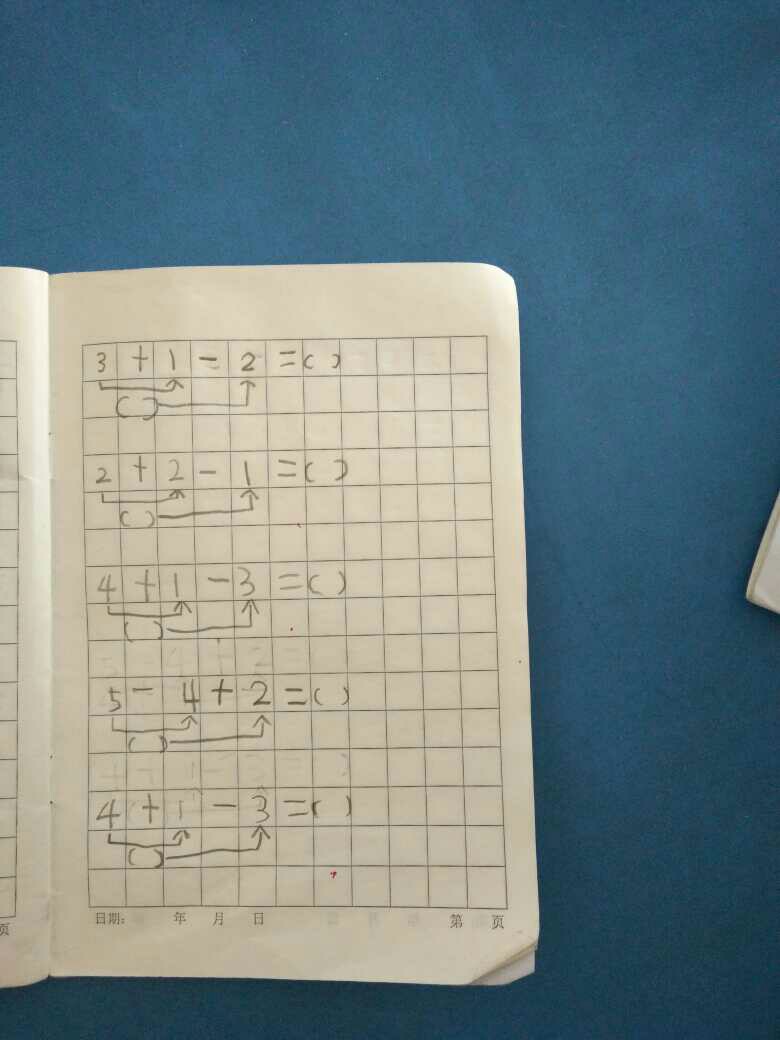 3 + 1 - 2 = ( )
( )
2 + 2 - 1 = ( )
( )
4 + 1 - 3 = ( )
( )
5 - 4 + 2 = ( )
( )
4 + 1 - 3 = ( )
( )
日期: 年 月 日 第 页
页